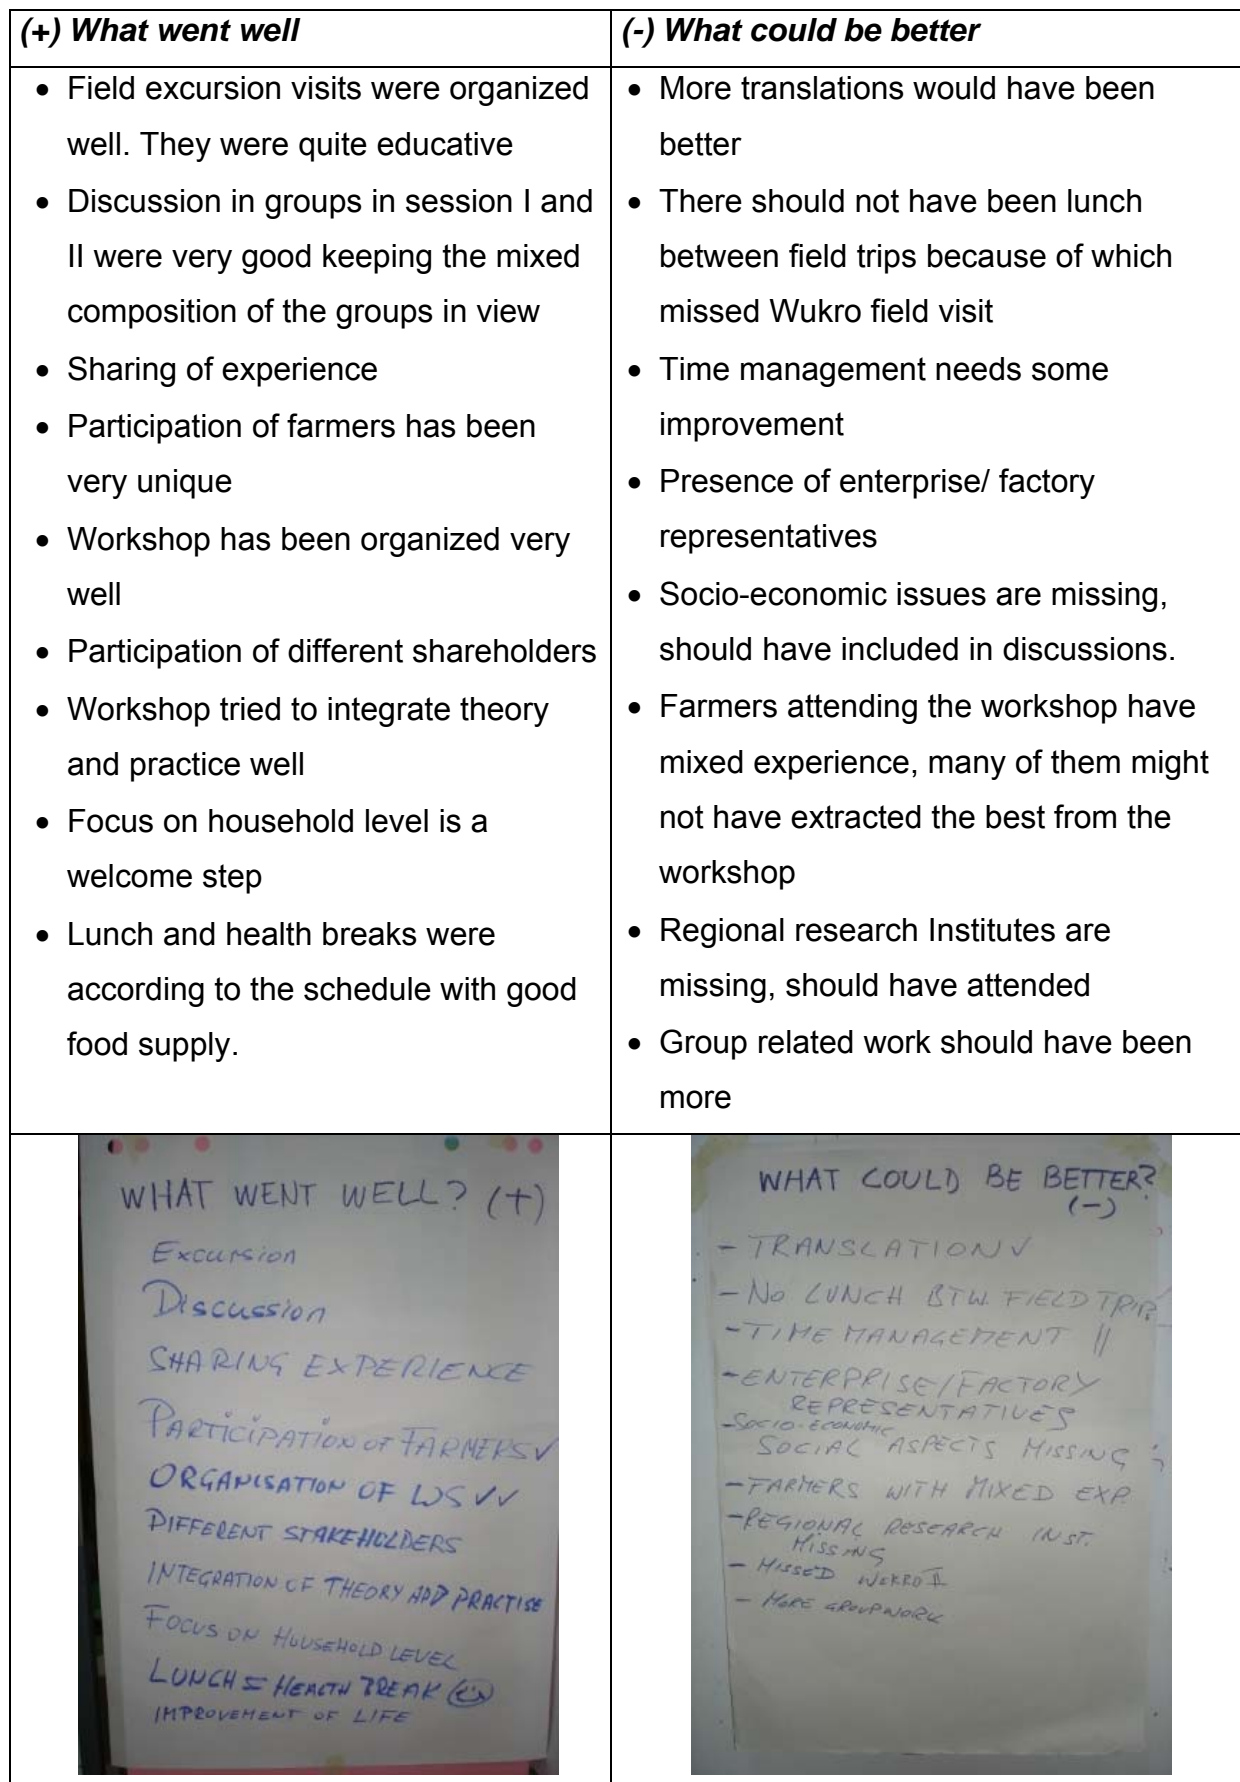 (+) What went well
• Field excursion visits were organized
well. They were quite educative
• Discussion in groups in session I and
II were very good keeping the mixed
composition of the groups in view
• Sharing of experience
• Participation of farmers has been
very unique
• Workshop has been organized very
well
• Participation of different shareholders
• Workshop tried to integrate theory
and practice well
• Focus on household level is a
welcome step
• Lunch and health breaks were
according to the schedule with good
food supply.
(-) What could be better
• More translations would have been
better
• There should not have been lunch
between field trips because of which
missed Wukro field visit
• Time management needs some
improvement
• Presence of enterprise/ factory
representatives
• Socio-economic issues are missing,
should have included in discussions.
• Farmers attending the workshop have
mixed experience, many of them might
not have extracted the best from the
workshop
• Regional research Institutes are
missing, should have attended
• Group related work should have been
more
WHAT WENT WELL? (+)
Excursion
Discussion
SHARING EXPERIENCE
PARTICIPATION OF FARMERS ✓
ORGANISATION OF WS ✓✓
DIFFERENT STAKEHOLDERS
INTEGRATION OF THEORY AND PRACTISE
FOCUS ON HOUSEHOLD LEVEL
LUNCH = HEALTH BREAK
IMPROVEMENT OF LIFE
WHAT COULD BE BETTER?
(-)
- TRANSLATION ✓
- NO LUNCH BTW. FIELD TRIPS
- TIME MANAGEMENT ||
- ENTERPRISE/FACTORY
REPRESENTATIVES
- SOCIO-ECONOMIC
SOCIAL ASPECTS MISSING
- FARMERS WITH MIXED EXP.
- REGIONAL RESEARCH INST.
MISSING
- MISSED WUKRO II
- MORE GROUPWORK